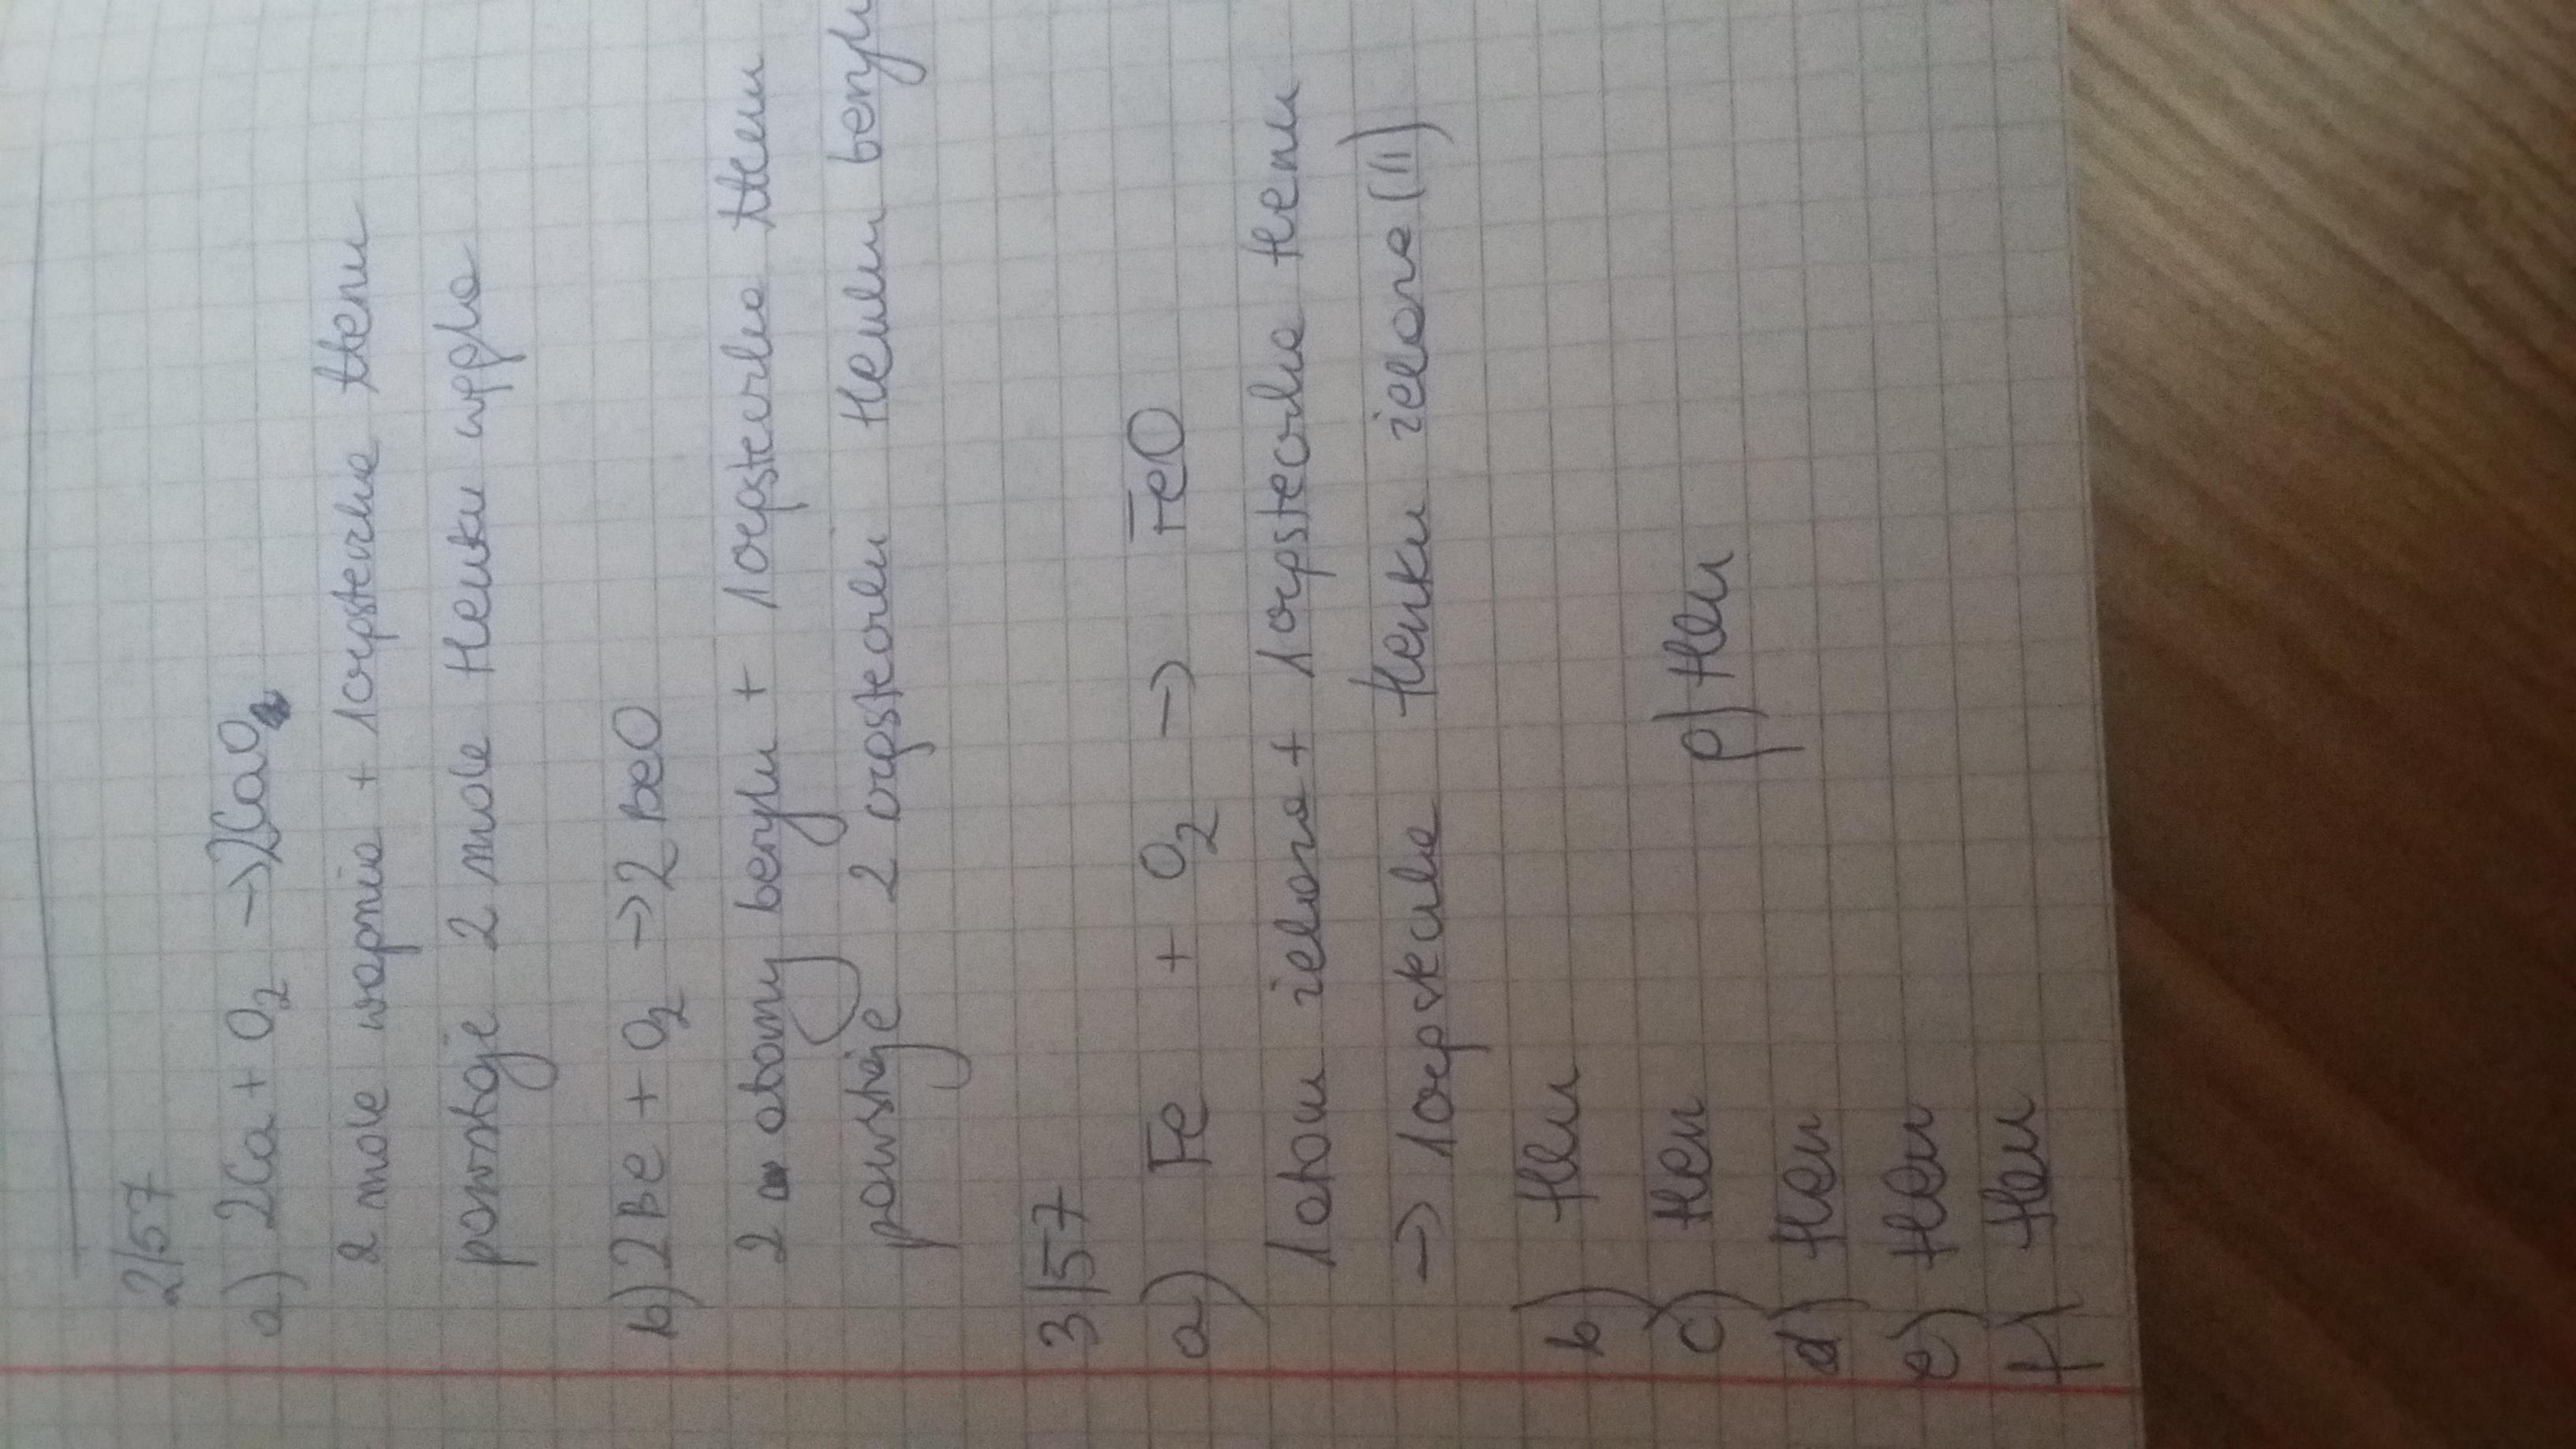 2/57
a) 2Ca + O₂ → 2CaO
2 mole wapnia + 1 cząsteczka tlenu
powstaje 2 mole tlenku wapnia
b) 2Be + O₂ → 2BeO
2 atomy berylu + 1 cząsteczka tlenu
powstaje 2 cząsteczki tlenku berylu
3/57
a) Fe + O₂ → FeO
1 atom żelaza + 1 cząsteczka tlenu
→ 1 cząsteczka tlenku żelaza (II)
b) tlen
c) tlen p) tlen
d) tlen
e) tlen
f) tlen